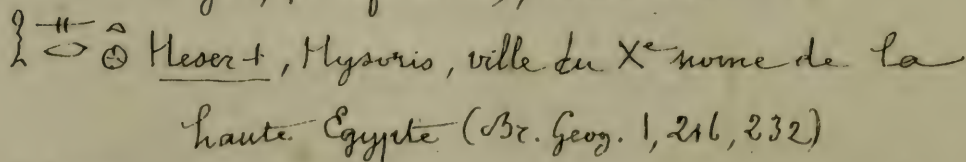 Heser-t, Hysoris, ville du Xe nome de la
haute Egypte (Br. Geog. 1, 216, 232)